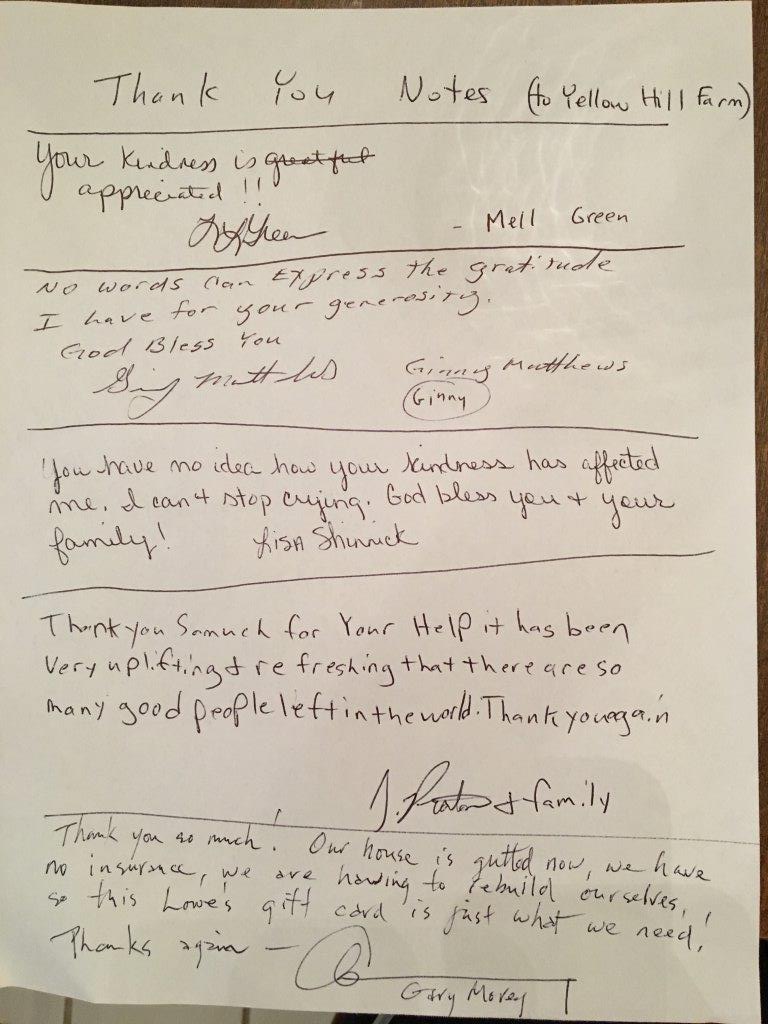 Thank You Notes (to Yellow Hill Farm)
Your kindness is greatful
appreciated!!
- Mell Green
No words can Express the gratitude
I have for your generosity.
God Bless You
Ginny Matthews
Ginny
You have no idea how your kindness has affected
me. I can't stop crying. God bless you + your
family! Lisa Shinnick
Thank you Somuch for Your Help it has been
Very uplifting & refreshing that there are so
many good people left in the world. Thank you again
J. & family
Thank you so much! Our house is gutted now, we have
no insurance, we are having to rebuild ourselves,
so this Lowe's gift card is just what we need!
Thanks again -
Gary Morey